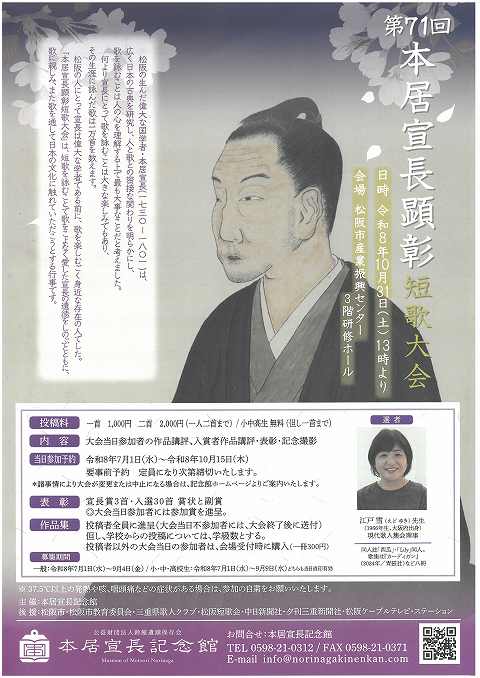 第71回
本居宣長顕彰
短歌大会
日時 令和8年10月31日(土) 13時より
会場 松阪市産業振興センター
3階研修ホール
松阪の生んだ偉大な国学者・本居宣長(一七三〇ー一八〇一)は、
広く日本の古典を研究し、人と歌との密接な関わりを明らかにし、
歌を詠むことは人の心を理解する上で最も大事なことだと考えました。
何より宣長にとって歌を詠むことは大きな楽しみでもあり、
その生涯に詠んだ歌は一万首を数えます。
松阪の人にとって宣長は偉大な学者である前に、歌を楽しむごく身近な存在の人でした。
「本居宣長顕彰短歌大会」は、短歌を詠むことで歌をこよなく愛した宣長の遺徳をしのぶとともに、
歌に親しみ、また歌を通して日本の文化に触れていただこうとする行事です。
投稿料 一首 1,000円 二首 2,000円(一人二首まで) / 小中高生 無料(但し一首まで)
内容 大会当日参加者の作品講評、入賞者作品講評・表彰・記念撮影
当日参加予約 令和8年7月1日(水)~令和8年10月15日(木)
要事前予約 定員になり次第締切いたします。
*諸事情により大会が変更または中止になる場合は、記念館ホームページよりご案内いたします。
表彰 宣長賞3首・入選30首 賞状と副賞
◎大会当日参加者には参加賞を進呈。
作品集 投稿者全員に進呈(大会当日不参加者には、大会終了後に送付)
但し、学校からの投稿については、学級数とする。
投稿者以外の大会当日の参加者は、会場受付時に購入(一冊300円)
募集期間
一般：令和8年7月1日(水)~9月4日(金) / 小・中・高校生：令和8年7月1日(水)~9月9日(水) どちらも当日消印有効
選者
江戸 雪(えど ゆき)先生
(1966年生、大阪府出身)
現代歌人集会理事
※ 37.5℃以上の発熱や咳、咽頭痛などの症状がある場合は、参加の自粛をお願いいたします。
主催：本居宣長記念館
後援：松阪市・松阪市教育委員会・三重県歌人クラブ・松阪短歌会・中日新聞社・夕刊三重新聞社・松阪ケーブルテレビ・ステーション
公益財団法人鈴屋遺蹟保存会
本居宣長記念館
Museum of Motoori Norinaga
お問合せ：本居宣長記念館
TEL 0598-21-0312 / FAX 0598-21-0371
E-mail info@norinagakinenkan.com